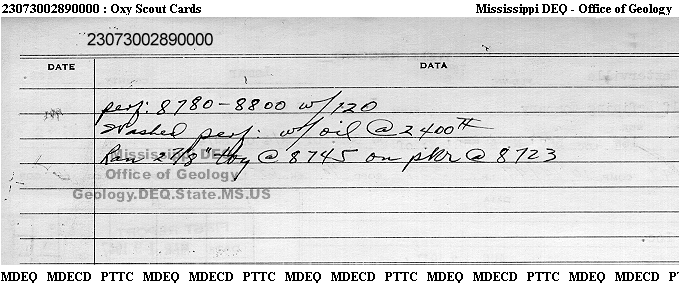 23073002890000 : Oxy Scout Cards Mississippi DEQ - Office of Geology
23073002890000
DATE DATA
perf: 8780-8800 w/120
Washed perf: w/oil @ 2400#
Ran 2 7/8" tbg @ 8745 on pkr @ 8723
Mississippi DEQ
Office of Geology
Geology.DEQ.State.MS.US
MDEQ MDECD PTTC MDEQ MDECD PTTC MDEQ MDECD PTTC MDEQ MDECD PTTC MDEQ MDECD P